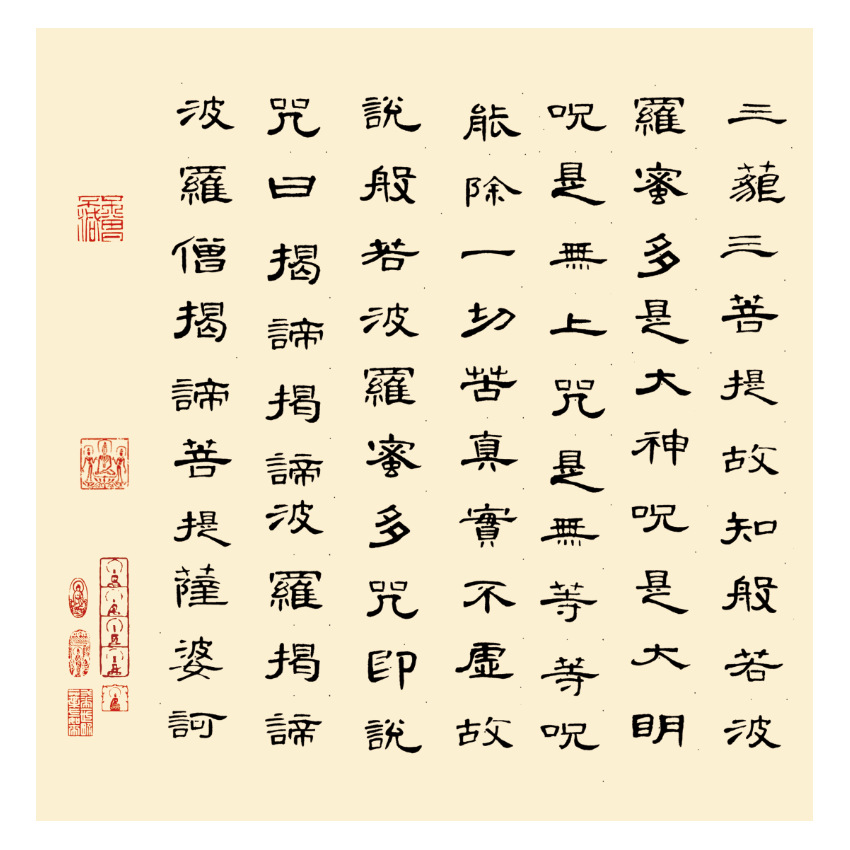 三藐三菩提故知般若波
羅蜜多是大神呪是大明
呪是無上咒是無等等呪
能除一切苦真實不虛故
說般若波羅蜜多咒即說
咒曰揭諦揭諦波羅揭諦
波羅僧揭諦菩提薩婆訶